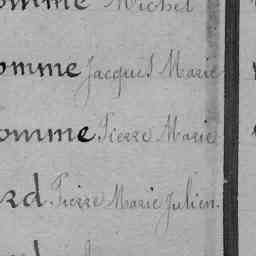 omme Michel
omme Jacques Marie
omme Pierre Marie
rd Pierre Marie Julien.